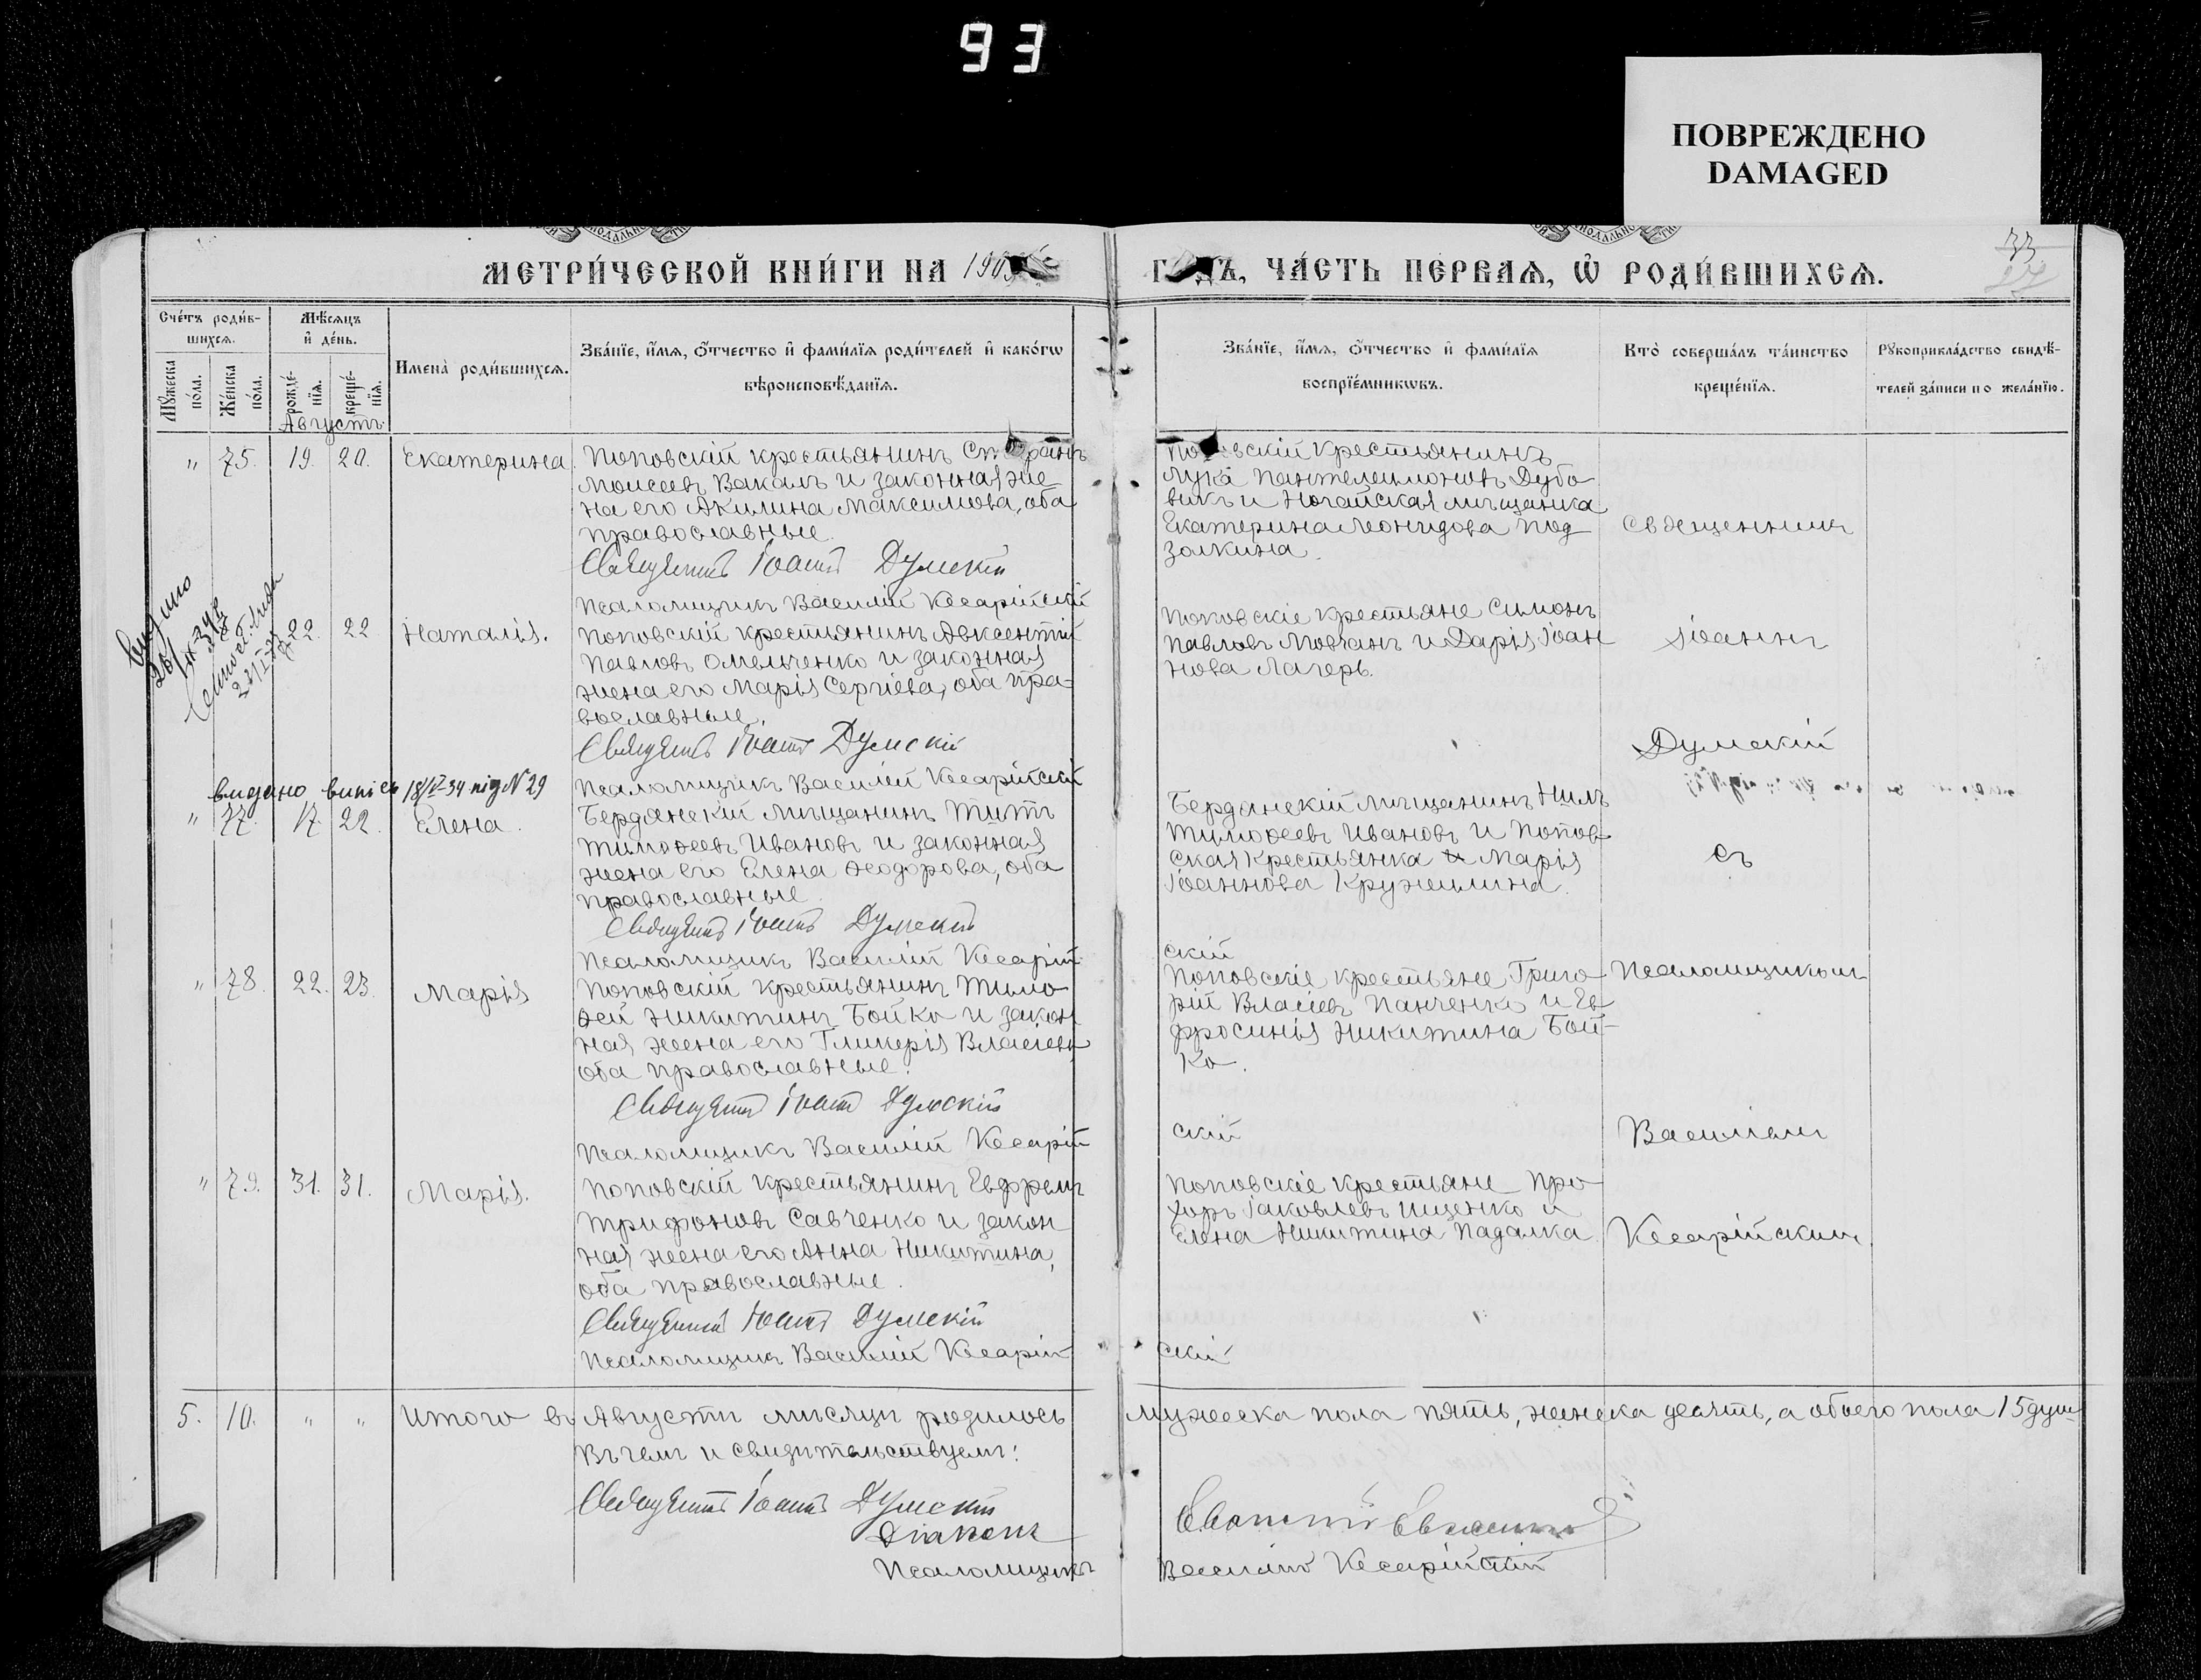 93
ПОВРЕЖДЕНО
DAMAGED
33
МЕТРИ́ЧЕСКОЙ КНИ́ГИ НА 190
Ъ, ЧА́СТЬ ПЕ́РВАЯ, Ѡ҆ РОДИ́ВШИХСЯ.
Сче́тъ роди́в-
шихсѧ.
Мѣ́сѧцъ
и҆ де́нь.
Имена̀ роди́вшихсѧ.
Зва́нїе, и҆́мѧ, ѻ҆́тчество и҆ фами́лїѧ роди́телей и҆ како́гѡ
вѣроисповѣ́данїѧ.
Зва́нїе, и҆́мѧ, ѻ҆́тчество и҆ фами́лїѧ
воспрїе́мникѡвъ.
Кто̀ соверша́лъ та́инство
креще́нїѧ.
Рꙋкоприкла́дство свидѣ́-
телей за́писи по жела́нїю.
Мꙋ́жеска
по́ла.
Же́нска
по́ла.
рожде́-
нїѧ.
креще́-
нїѧ.
Августъ
" 75. 19. 20. Екатерина.
Поповскій крестьянинъ
Моисеевъ Вакалъ и законная же
на его Акилина Максимова, оба
православные.
Священникъ Іоаннъ Думскій
Псаломщикъ Василій Кесарійскій
Поповскій крестьянинъ
Лука Пантелеимоновъ Дубо
викъ и Ногайская мѣщанка
Екатерина Леонидова Под
золкина.
Священникъ
22. 22. Наталія.
Поповскій крестьянинъ Авксентій
Павловъ Омельченко и законная
жена его Марія Сергіева, оба пра-
вославные.
Священникъ Іоаннъ Думскій
Псаломщикъ Василій Кесарійскій
Поповскіе крестьяне Симонъ
Павловъ Мовчанъ и Дарія Іоан
нова Лагерь.
Іоаннъ
Думскій
видано випісь 18/V-34 під N 29
" 77. 17 22. Елена.
Бердянскій мѣщанинъ Титъ
Тимоѳеевъ Ивановъ и законная
жена его Елена Ѳеодорова, оба
православные.
Священникъ Іоаннъ Думскій
Псаломщикъ Василій Кесарій
Бердянскій мѣщанинъ Нилъ
Тимоѳеевъ Ивановъ и Попов
ская крестьянка Марія
Іоаннова Кружилина.
скій
съ
" 78. 22. 23. Марія
Поповскій крестьянинъ Тимо
ѳей Никитинъ Бойко и закон
ная жена его Гликерія Власіева
оба православные.
Священникъ Іоаннъ Думскій
Псаломщикъ Василій Кесарій
Поповскіе крестьяне Григо
рій Власіевъ Панченко и Ев
фросинія Никитина Бой-
ко.
скій
Псаломщикомъ
Василіемъ
" 79. 31. 31. Марія.
Поповскій крестьянинъ Евфремъ
Трифоновъ Савченко и закон
ная жена его Анна Никитина,
оба православные.
Священникъ Іоаннъ Думскій
Псаломщикъ Василій Кесарій
Поповскіе крестьяне Про
хоръ Іаковлевъ Ищенко и
Елена Никитина Падалка.
скій
Кесарійскимъ.
5. 10. " " Итого въ Августѣ мѣсяцѣ родилось мужеска пола пять, женска десять, а обоего пола 15 душъ
Въ чемъ и свидѣтельствуемъ:
Священникъ Іоаннъ Думскій
Діаконъ
Псаломщикъ Василій Кесарійскій